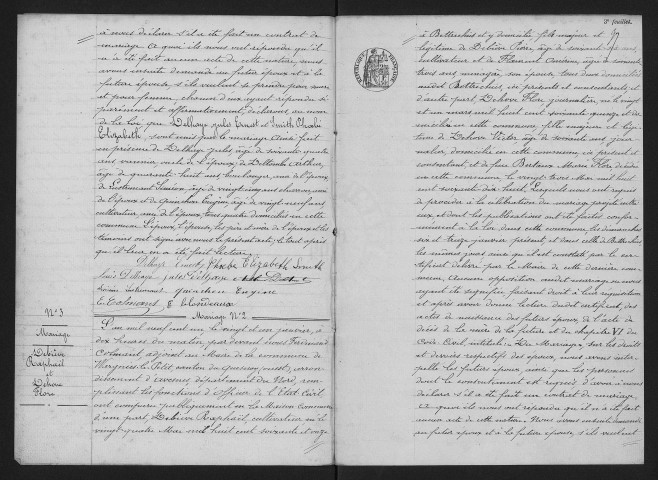 à nous déclarer s'il a été fait un contrat de
mariage. À quoi ils nous ont répondu qu'il
n'a été fait aucun acte de cette nature, nous
avons ensuite demandé au futur époux et à la
future épouse, s'ils veulent se prendre pour mari
et pour femme, chacun d'eux ayant répondu sé-
parément et affirmativement déclarons au nom
de la loi que Delhaye Jules Ernest et Smith Phoebé
Elizabeth, sont unis par le mariage. Ainsi fait
en présence de Delhaye Jules, âgé de soixante quatre
ans vannier oncle de l'époux, de Arthur,
âgé de quarante huit ans boulanger, ami de l'époux
de âgé de vingt cinq ans charron, ami
de l'époux et de Quinchon Eugène âgé de vingt neuf ans
cultivateur ami de l'époux, tous quatre domiciliés en cette
commune. L'époux, l'épouse, les père et mère de l'époux et les
témoins ont signé avec nous le présent acte, le tout après
qu'il leur en a été fait lecture.
Delhaye Ernest Phoebe Elizabeth Smith
Jules Delhaye
Quinchon Eugène
N° 3
Mariage
Debiève
Raphaël
et
Dehove
Flore
Mariage N° 2
L'an mil neuf cent un le vingt six janvier, à
dix heures du matin, par devant nous Ferdinand
Colmont, adjoint au Maire de la commune de
Wargnies-le-Petit, canton du Quesnoy (ouest), arron-
dissement d'Avesnes, département du Nord, rem-
plissant les fonctions d'Officier de l'État Civil
ont comparu publiquement en la Maison Commune
d'une part, Debiève Raphaël, cultivateur né le
vingt quatre Mai mil huit cent soixante et onze
3e feuillet.
à Bettrechies et y domicilié fils majeur et
légitime de Debiève Pierre, âgé de soixante ans,
cultivateur et de Flament âgée de soixante
trois ans ménagère, son épouse, tous deux domiciliés
audit Bettrechies, ici présents et consentants et
d'autre part, Dehove Flore journalière, née le vingt
et un mars mil huit cent soixante quinze et do-
miciliée en cette commune, fille majeure et légi-
time de Dehove Victor âgé de soixante ans jour-
nalier, domicilié en cette commune, ici présent et
consentant et de feue Berteaux Marie Flore décédée
en cette commune, le vingt trois Mai mil huit
cent soixante dix huit. Lesquels nous ont requis
de procéder à la célébration du mariage projeté entre
eux et dont les publications ont été faites confor-
mément à la loi dans cette commune les dimanches
six et treize janvier présent et dans celle de Bettrechies
les mêmes jours ainsi qu'il est constaté par le cer-
tificat délivré par le Maire de cette dernière com-
mune. Aucune opposition audit mariage ne nous
ayant été signifiée faisant droit à leur réquisition
et après avoir donné lecture dudit certificat, des
actes de naissance des futurs époux, de l'acte de
décès de la mère de la future et du chapitre VI du
Code Civil intitulé : « Du Mariage », sur les droits
et devoirs respectifs des époux, nous avons inter-
pellé les futurs époux, ainsi que les personnes
dont le consentement est requis d'avoir à nous
déclarer s'il a été fait un contrat de mariage.
À quoi ils nous ont répondu qu'il n'a été fait
aucun acte de cette nature. Nous avons ensuite demandé
au futur époux et à la future épouse, s'ils veulent